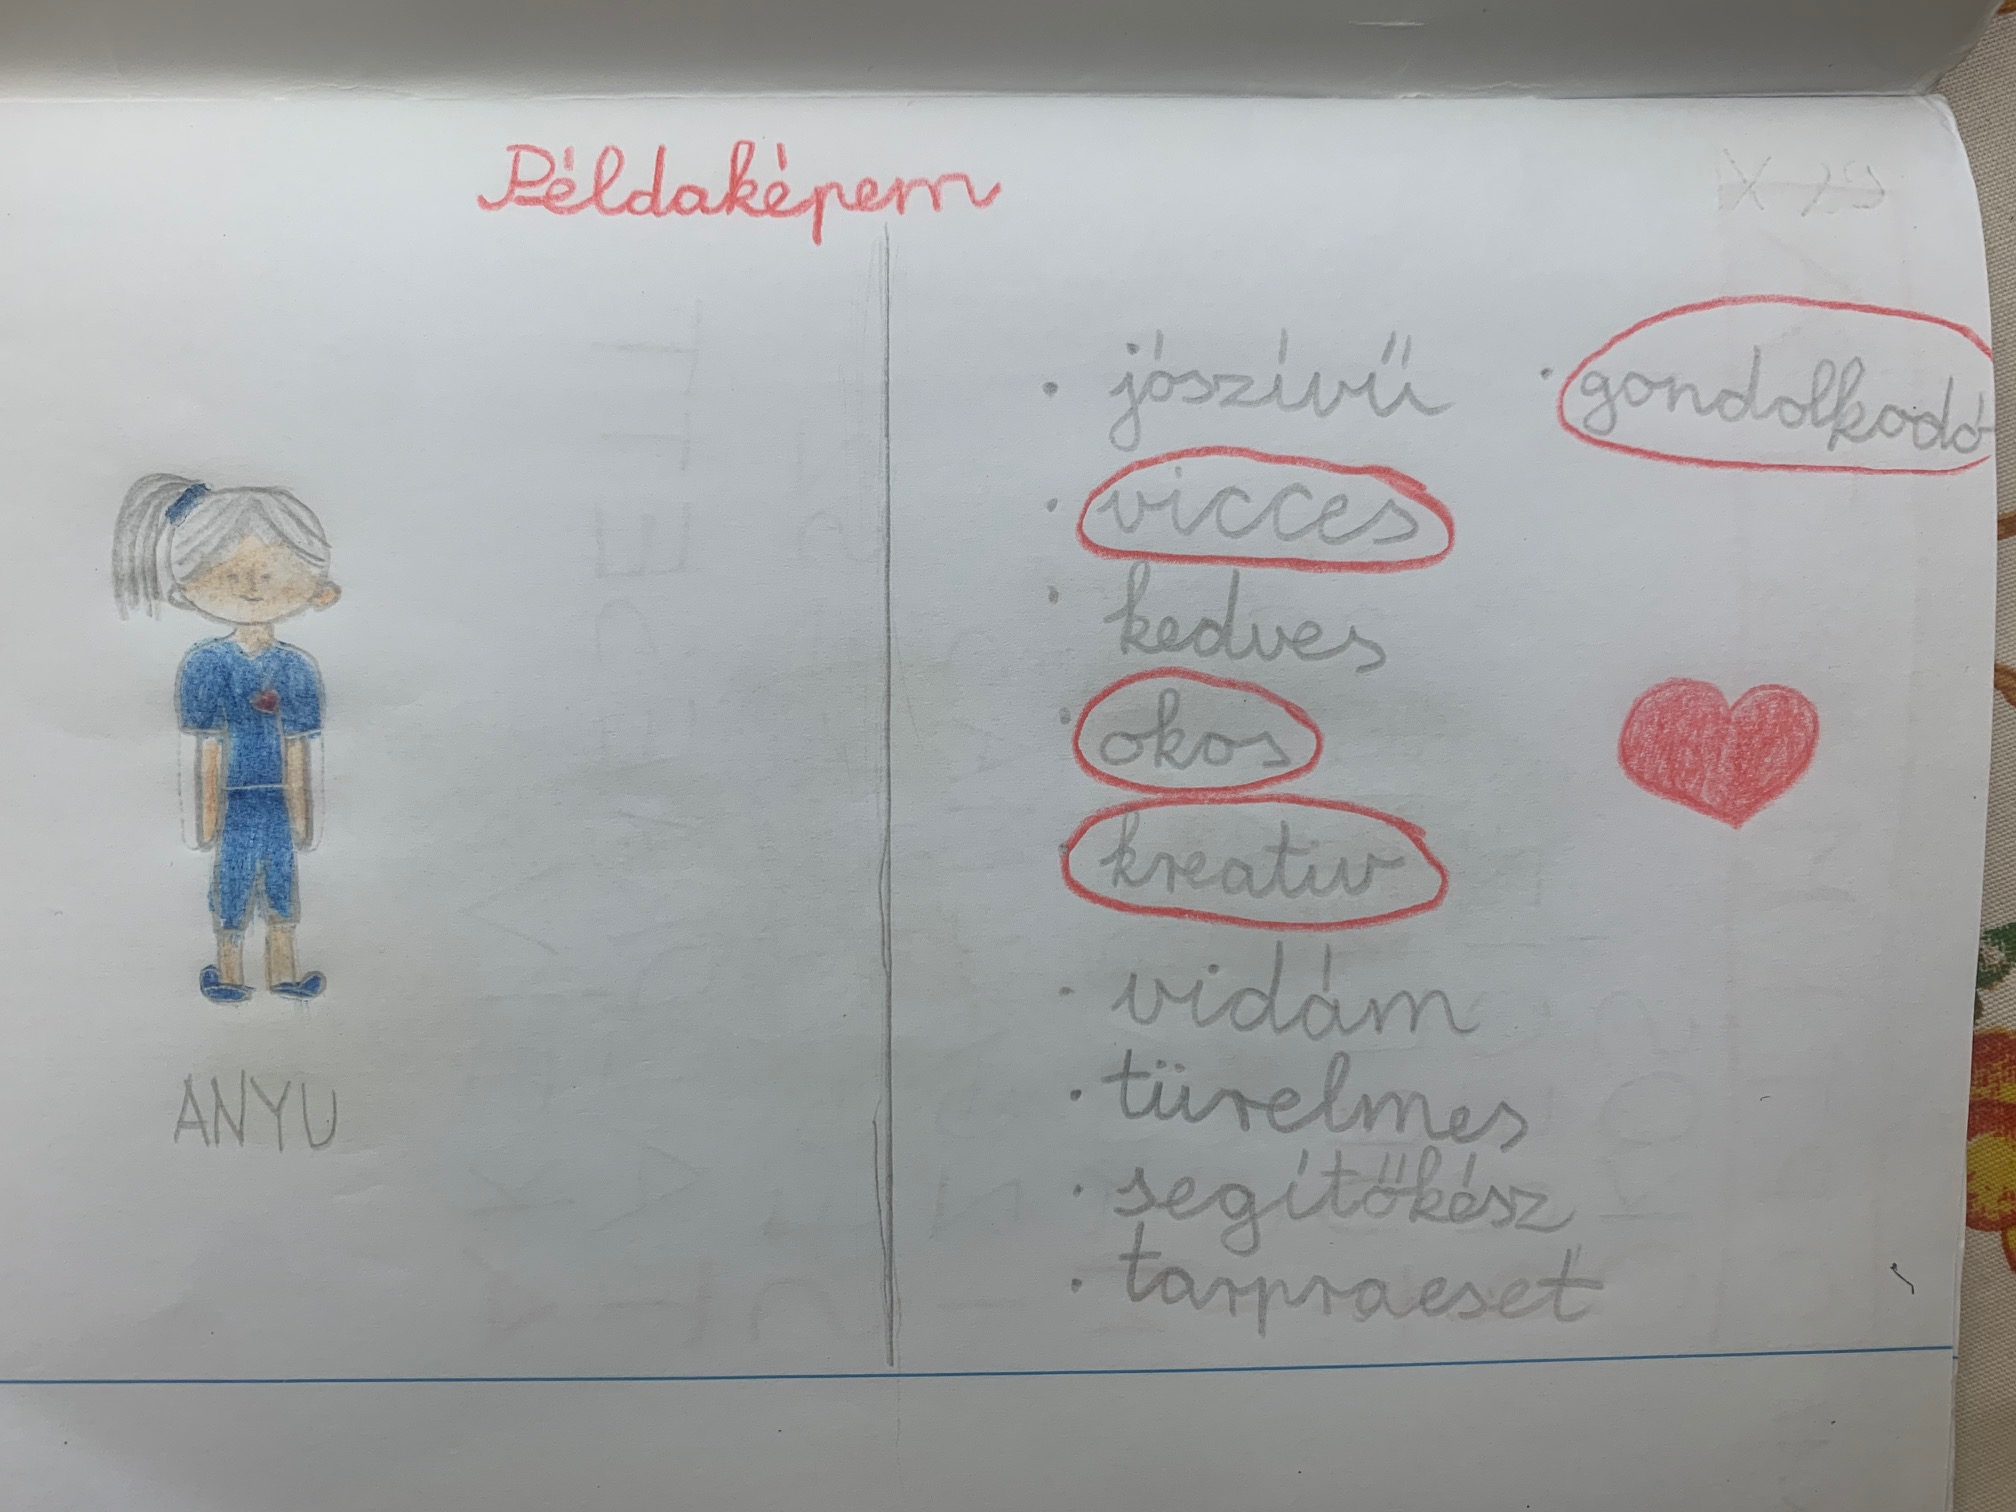 Példaképem
ANYU
• jószívű
• vicces
• kedves
• okos
• kreatív
• vidám
• türelmes
• segítőkész
• tarpraeset
• gondolkodó